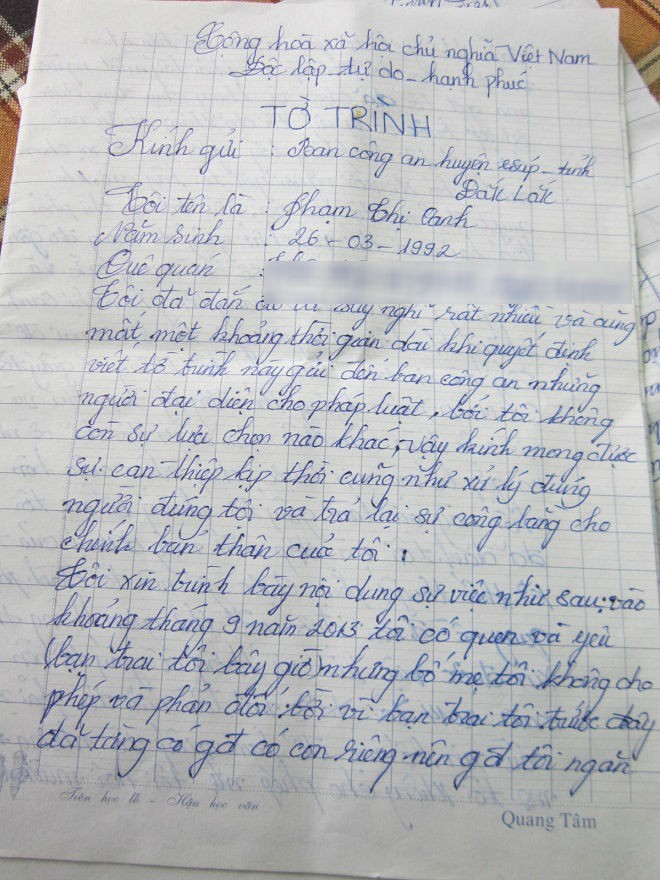 Cộng hoà xã hội chủ nghĩa Việt Nam
Độc lập - tự do - hạnh phúc
TỜ TRÌNH
Kính gửi : Ban công an huyện easúp - tỉnh
Đắk Lắk
Tôi tên là : Phạm Thị Oanh
Năm sinh : 26 - 03 - 1992
Quê quán :
Tôi đã đắn suy nghĩ rất nhiều và cũng
mất một khoảng thời gian dài khi quyết định
viết tờ trình này gửi đến ban công an những
người đại diện cho pháp luật, bởi tôi không
còn sự lựa chọn nào khác, vậy kính mong được
sự can thiệp kịp thời cũng như xử lý đúng
người đúng tội và trả lại sự công bằng cho
chính bản thân của tôi.
Tôi xin trình bày nội dung sự việc như sau: vào
khoảng tháng 9 năm 2013 tôi có quen và yêu
(bạn trai tôi bây giờ) nhưng bố mẹ tôi không cho
phép và phản đối. bởi vì bạn trai tôi trước đây
đã từng có gđ có con riêng nên gđ tôi ngăn
Tiên học lễ - Hậu học văn
Quang Tâm